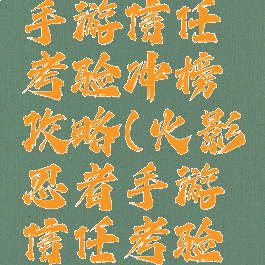 手游信任
考验冲榜
攻略(火影
忍者手游
信任考验